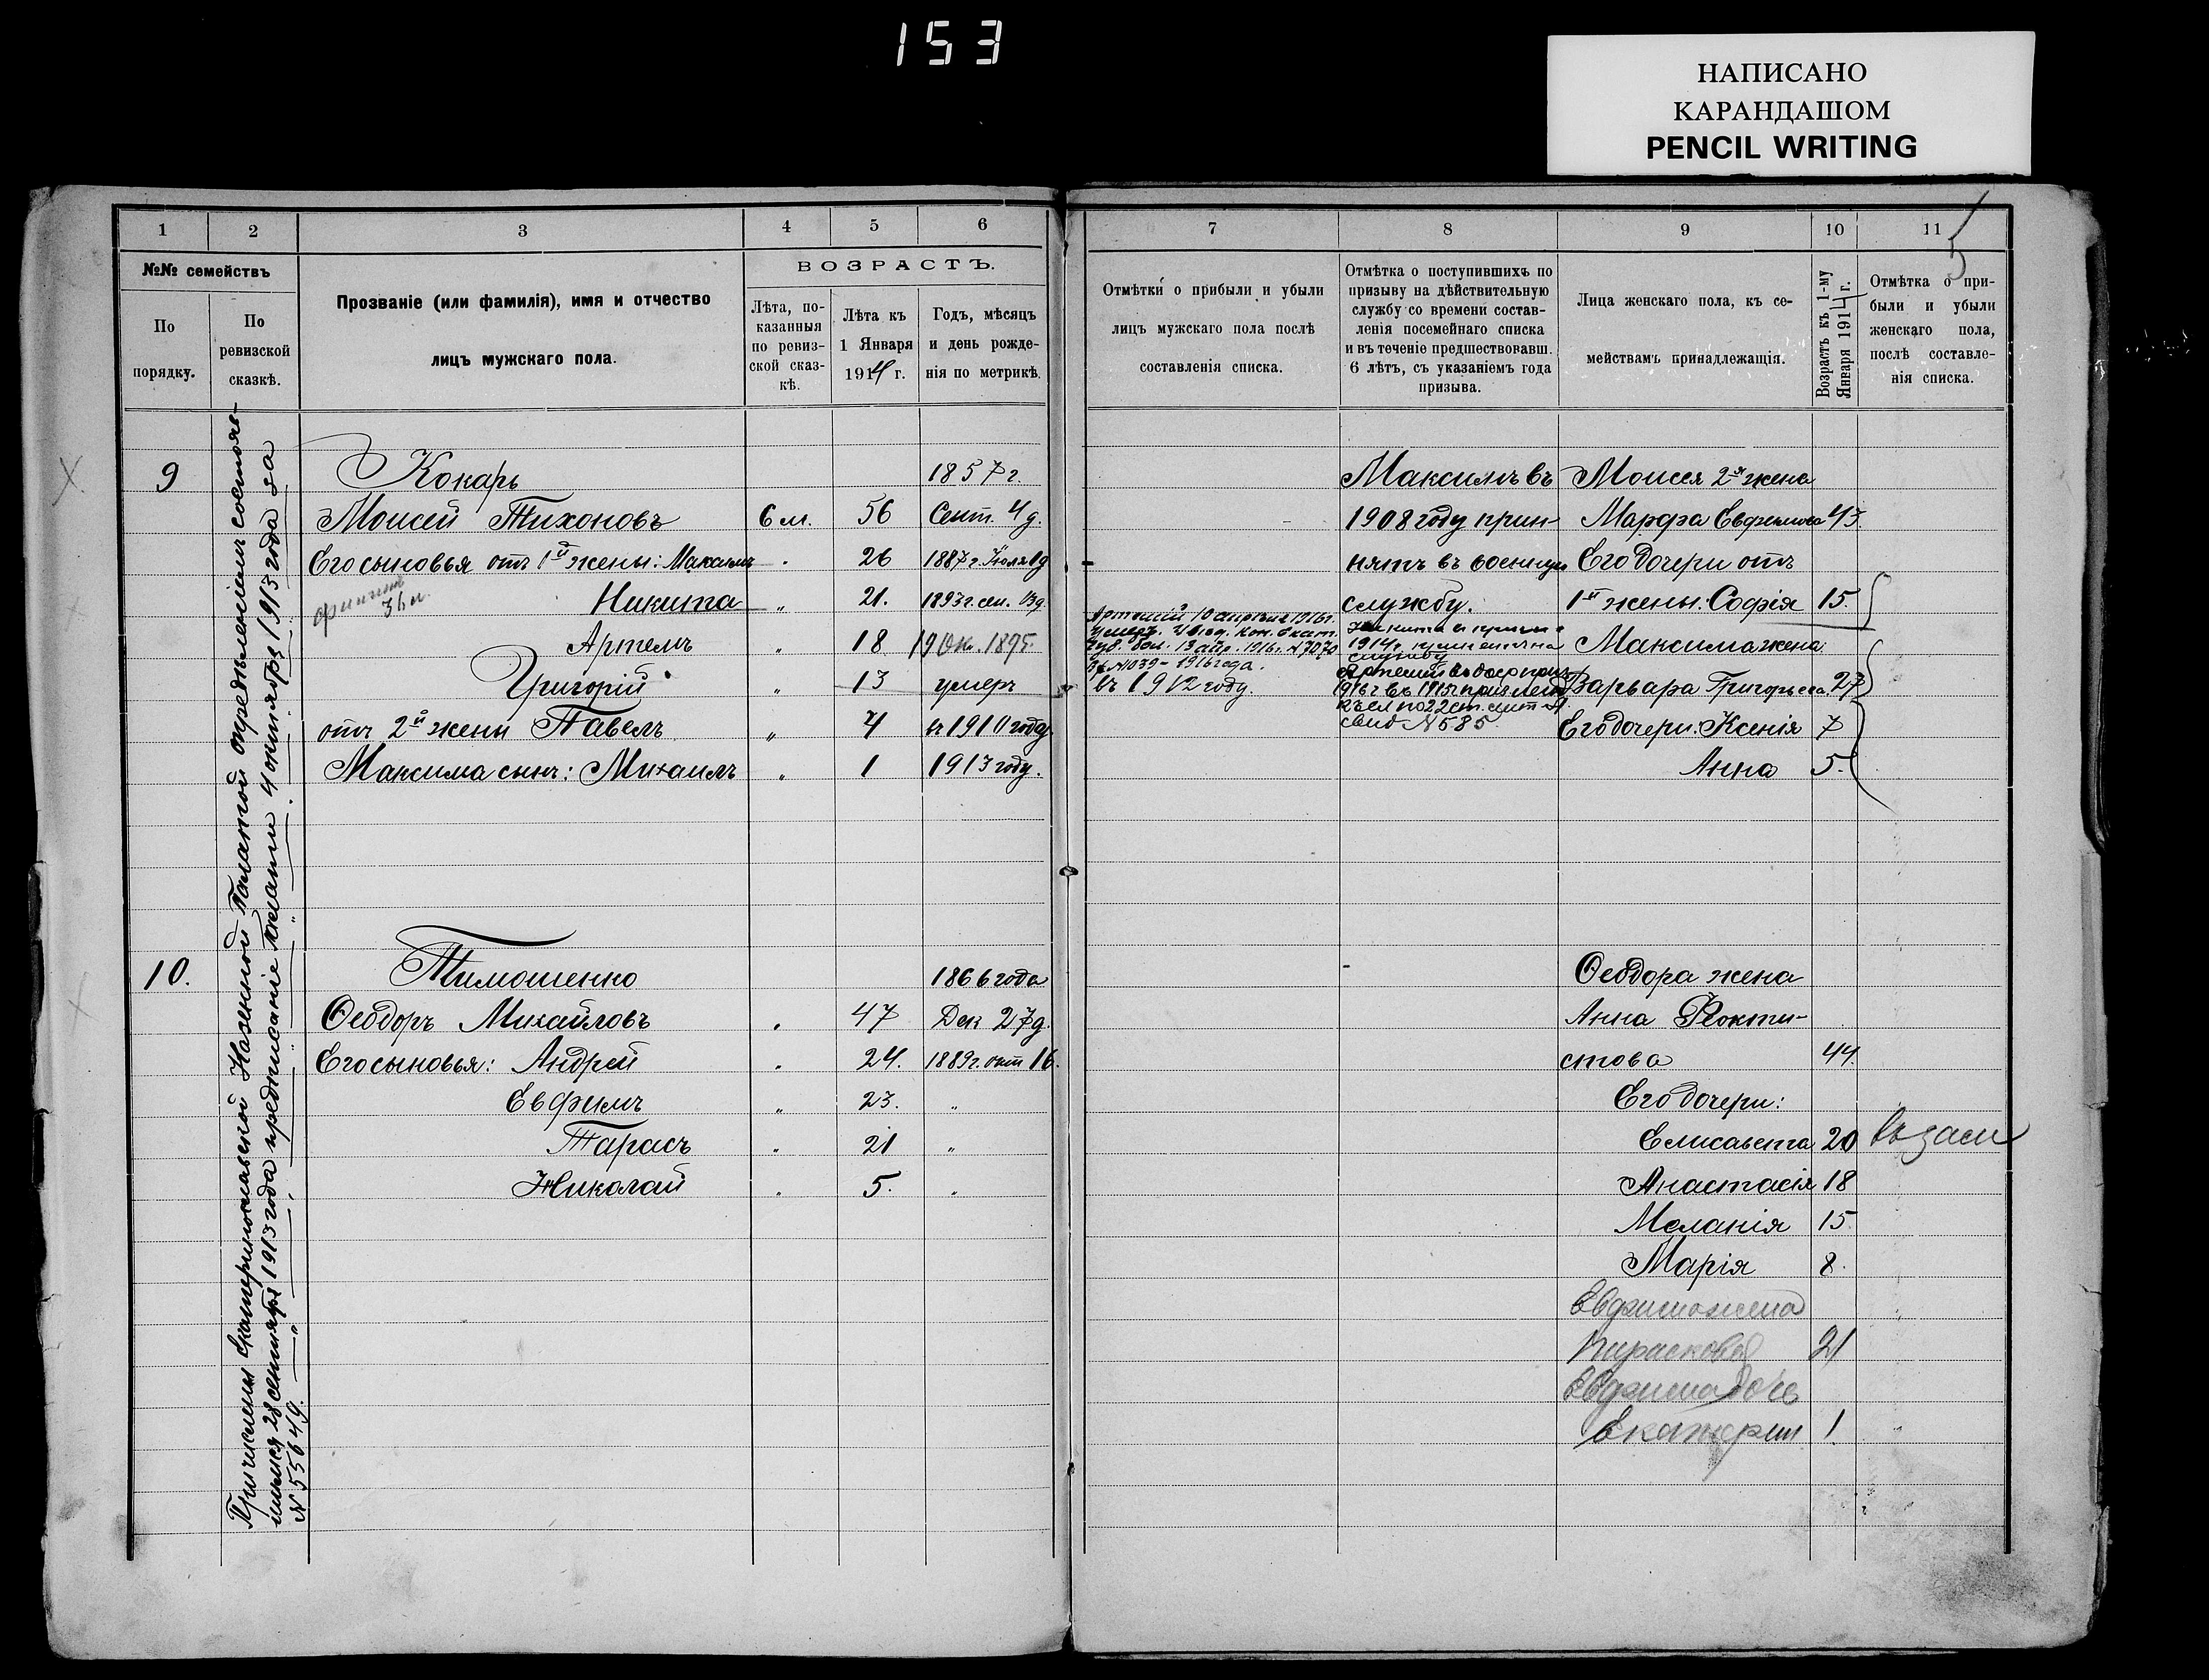 153
НАПИСАНО
КАРАНДАШОМ
PENCIL WRITING
5
1 2 3 4 5 6
№№ семействъ
По порядку.
По ревизской сказкѣ.
Прозваніе (или фамилія), имя и отчество
лицъ мужскаго пола.
ВОЗРАСТЪ.
Лѣта, показанныя по ревизской сказкѣ.
Лѣта къ 1 Января 1914 г.
Годъ, мѣсяцъ и день рожденія по метрикѣ.
7 8 9 10 11
Отмѣтки о прибыли и убыли
лицъ мужскаго пола послѣ
составленія списка.
Отмѣтка о поступившихъ по
призыву на дѣйствительную
службу со времени состав-
ленія посемейнаго списка
и въ теченіе предшествовавш.
6 лѣтъ, съ указаніемъ года
призыва.
Лица женскаго пола, къ се-
мействамъ принадлежащія.
Возрастъ къ 1-му
Января 1914 г.
Отмѣтка о при-
были и убыли
женскаго пола,
послѣ составле-
нія списка.
Причислены Екатеринославской Казенной Палатой опредѣленіемъ состояв-
шимся 28 сентября 1913 года предписаніе Палаты 4 октября 1913 года за
N 55649.
9 Кокарь 1857 г.
Моисей Тихоновъ 6 м. 56 Сент. 4 д.
Его сыновья отъ 1й жены: Максимъ 26 1887 г. Іюля 1 д
Никита " 21. 1893 г. сен. 03 д.
Артемъ " 18 19 Ок. 1895.
Григорій " 13 умеръ
отъ 2й жены Павелъ " 4 въ 1910 году
Максима сынъ: Михаилъ " 1 1913 году.
Артемій 10 апрѣля 1916 г.
умеръ.
1916 г. N 7070
N 1039 - 1916 года.
въ 1912 году.
Максимъ въ
1908 году при-
нятъ въ военную
службу.
1914 г.
службу
свид N 585
Моисея 2я жена
Марфа Евфимова 43
Его дочери отъ
1й жены: Софія 15.
Максима жена
Варвара Григорьева 27
Его дочери: Ксенія 7
Анна 5.
10. Тимошенко 1866 года
Ѳеодоръ Михайловъ 47 Дек 27 д.
Его сыновья: Андрей 24. 1889 г. окт 16.
Евфимъ " 23. "
Тарасъ " 21 "
Николай " 5. "
Ѳеодора жена
Анна Ѳеокти-
стова 44.
Его дочери:
Елисавета 20 въ зам
Анастасія 18
Меланія 15.
Марія 8.
Евфима жена
Параскова 21
Евфима дочь
Екатерин 1.